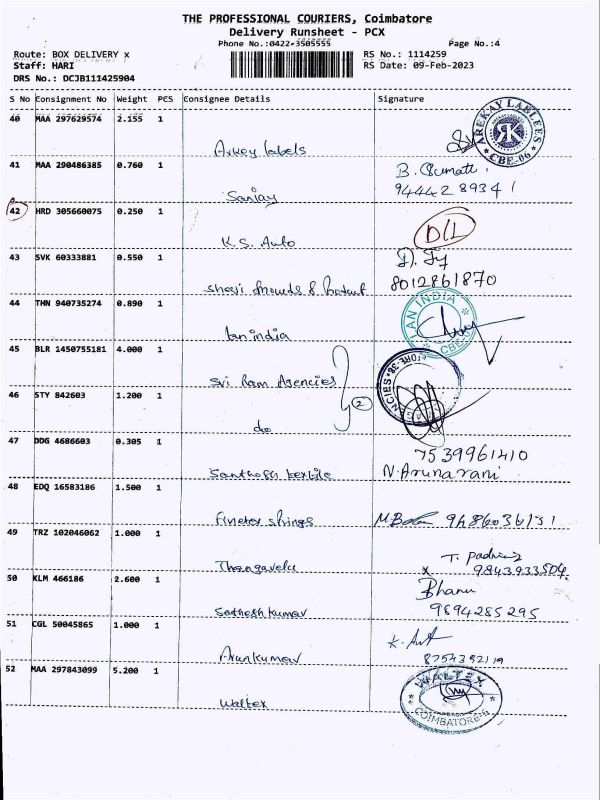 THE PROFESSIONAL COURIERS, Coimbatore
Delivery Runsheet - PCX
Phone No.:0422-3505555 Page No.:4
Route: BOX DELIVERY x RS No.: 1114259
Staff: HARI RS Date: 09-Feb-2023
DRS No.: DCJB111425904
S No Consignment No Weight PCS Consignee Details Signature
40 MAA 297629574 2.155 1
Arkey labels
AREKAY LABLEES
RK
* CBE-06 *
41 MAA 290486385 0.760 1 B. Sumati
Sanjay 9444289341
42 HRD 305660075 0.250 1
K.S. Auto D/L
43 SVK 60333881 0.550 1
8012861870
44 THN 940735274 0.890 1
LAN INDIA
CBE
lan india
45 BLR 1450755181 4.000 1
Sri Ram Agencies
46 STY 842603 1.200 1
do 2
47 DDG 4686603 0.305 1 7539961410
Santhosh textile N. Arunarani
48 EDQ 16583186 1.500 1
Finetex
49 TRZ 102046062 1.000 1
Thangavelu 9843933504
50 KLM 466186 2.600 1 Bhanu
Sathesh kumar 9694285295
51 CGL 50045865 1.000 1
Arunkumar
52 MAA 297843099 5.200 1
WALTEX
COIMBATORE-6
Waltex